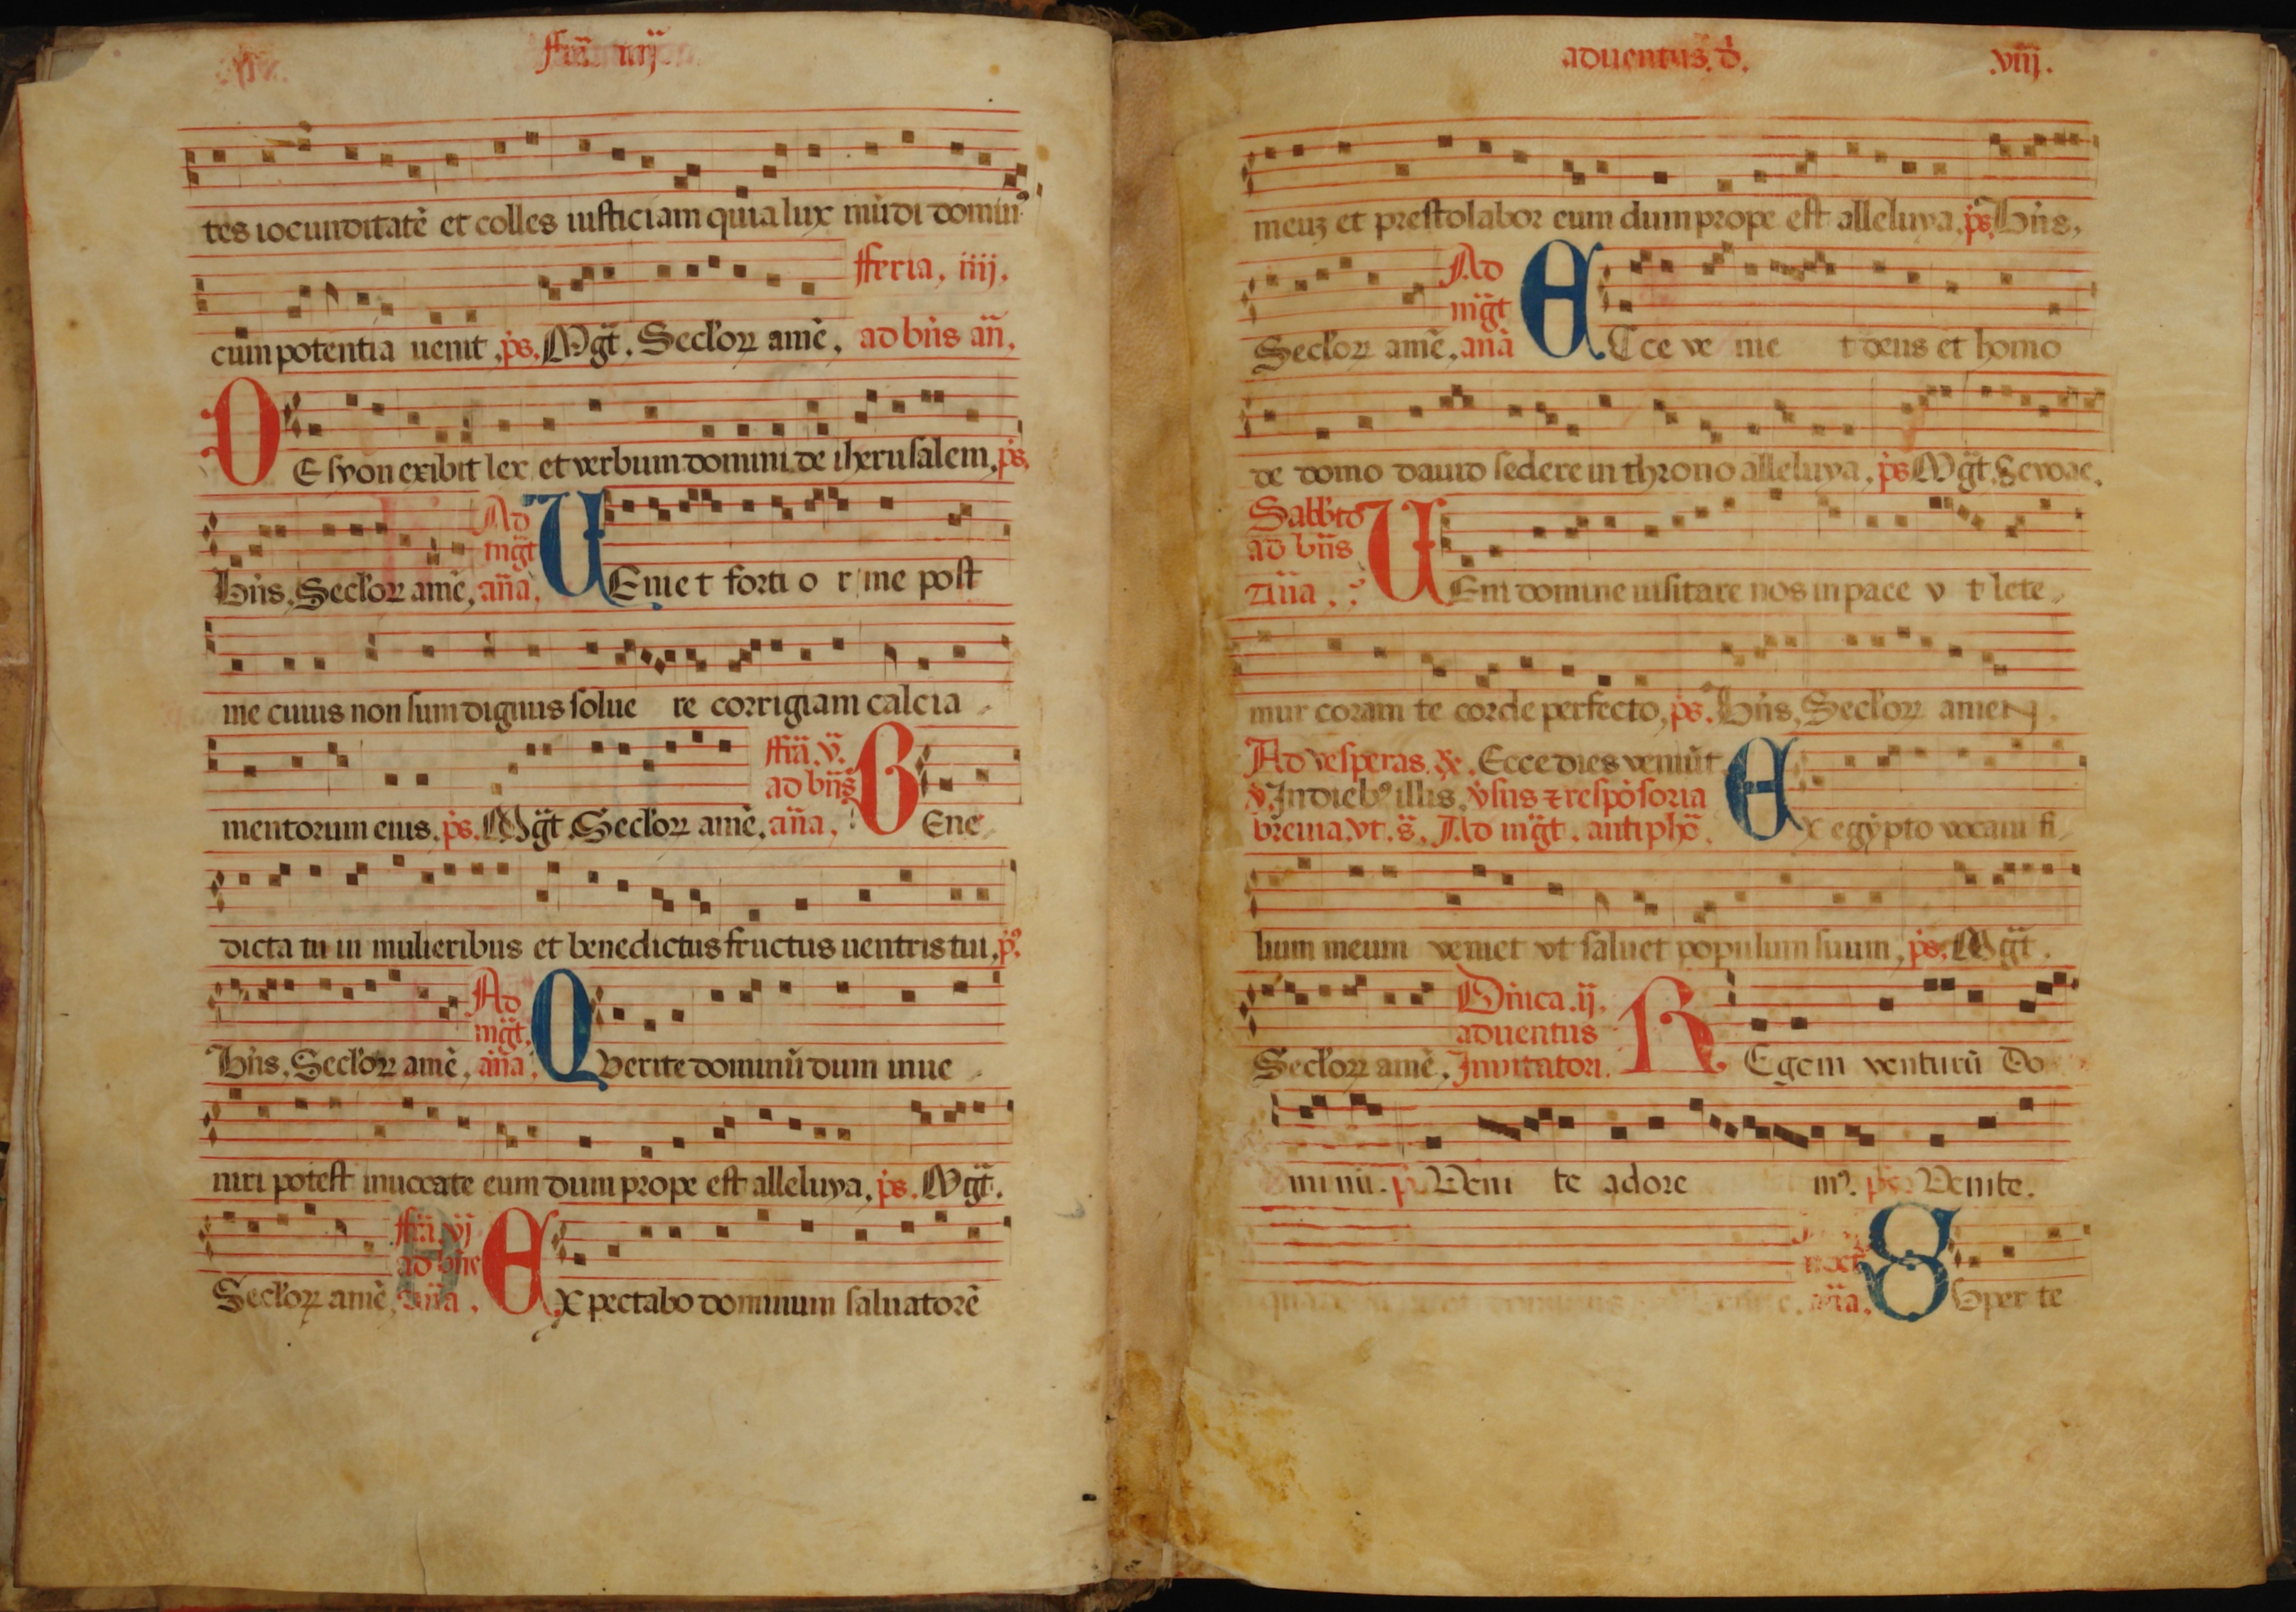 ffr̃a iiij
tes iocunditatē et colles iusticiam quia lux mūdi domin⁹
fferia, iiij.
cum potentia uenit, ps. Mg̃t. Secloꝝ amē, ad bñs añ,
DE syon exibit lex et verbum domini de iherusalem, ps,
Ad
mg̃t
Bñs, Secloꝝ amē, aña, VEniet forti o r me post
me cuius non sum dignus solue re corrigiam calcia
ffr̃a. v.
ad bñs
mentorum eius, ps. Mg̃t, Secloꝝ amē, aña, BEne
dicta tu in mulieribus et benedictus fructus uentris tui, p⁹
Ad
mg̃t,
Bñs, Secloꝝ amē, aña, QVerite dominū dum inue
niri potest inuocate eum dum prope est alleluya, ps. Mg̃t.
ffr̃a. vj
ad bñe
Secloꝝ amē, aña, EXpectabo dominum saluatorē
aduentus. d.
.viij.
meuꝫ et prestolabor eum dum prope est alleluya, ps, Bñs,
Ad
mg̃t
Secloꝝ amē, anā ECce ve nie t deus et homo
de domo dauid sedere in throno alleluya, ps Mg̃t, Seuoae,
Sabb̃to
ad bñs
aña, VEni domine uisitare nos in pace v t lete
mur coram te corde perfecto, ps. Bñs, Secloꝝ amen,
Ad vesperas, ꝶ. Ecce dies veniūt
v. In dieb⁹ illis, v̓sus ⁊ respōsoria
breuia. vt. s̃, Ad mg̃t. antiphō, EX egypto vocaui fi
lium meum veniet vt saluet populum suum, ps, Mg̃t.
Dñica. ij.
aduentus
Secloꝝ amē, Inuitatori. REgem venturū Do
minū. p. Veni te adore m⁹. ps. Venite.
noct
aña, SVper te